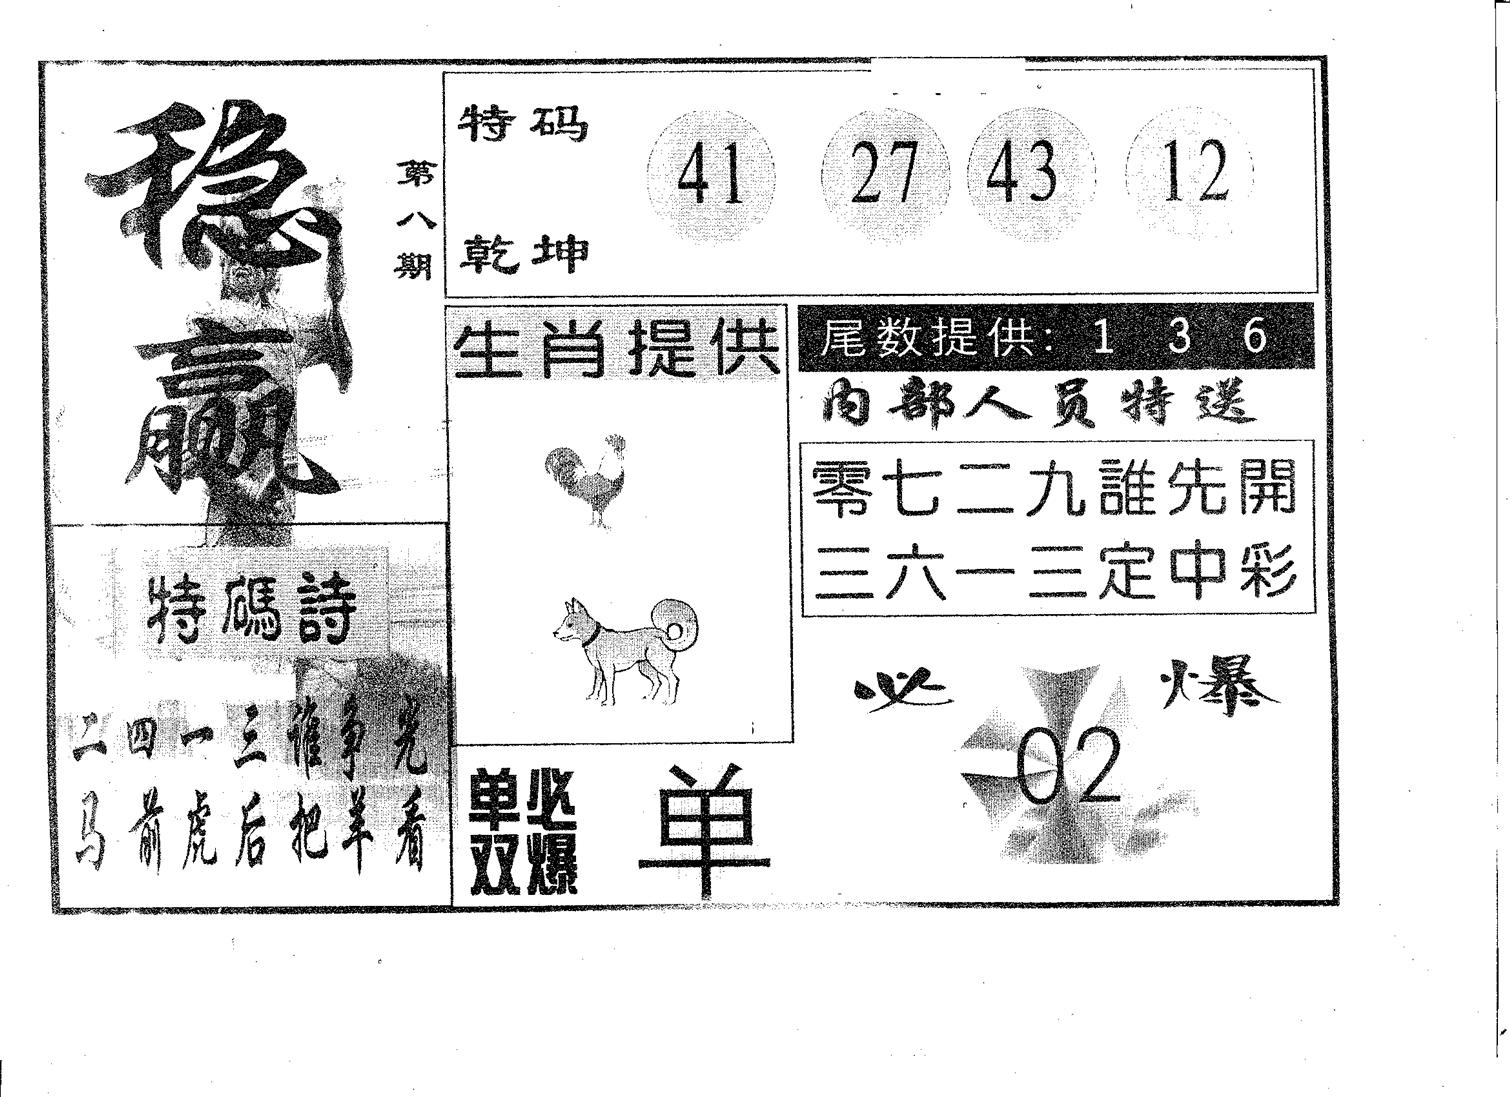 稳赢
第八期
特码
乾坤
41 27 43 12
生肖提供
尾数提供: 1 3 6
内部人员特送
零七二九誰先開
三六一三定中彩
特碼詩
二四一三谁争先
马前虎后把羊看
单双必爆
单
必爆
02